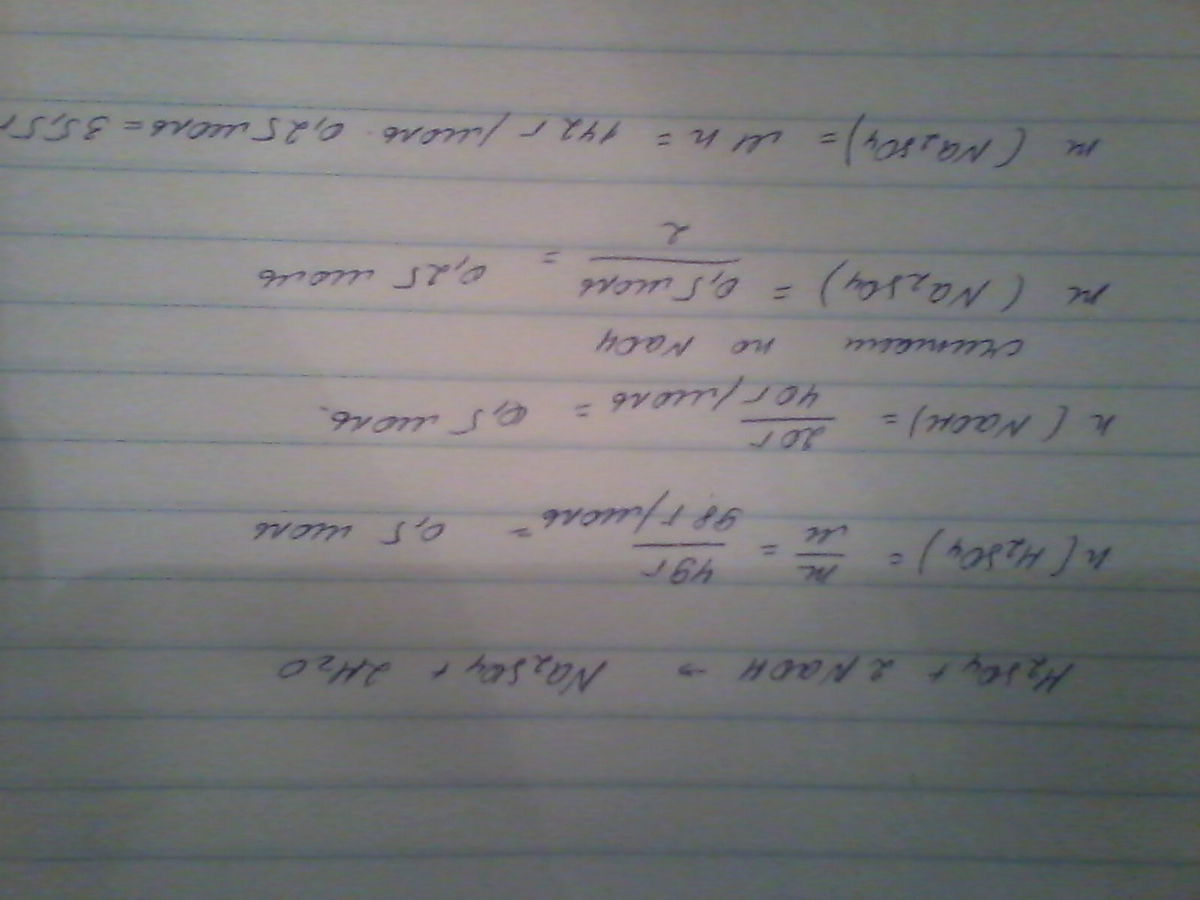 H₂SO₄ + 2NaOH → Na₂SO₄ + 2H₂O
n(H₂SO₄) = m/M = 49г/98 г/моль = 0,5 моль
n(NaOH) = 20г/40г/моль = 0,5 моль.
считаем по NaOH
m(Na₂SO₄) = 0,5 моль/2 = 0,25 моль
m(Na₂SO₄) = M n = 142 г/моль · 0,25 моль = 35,5 г